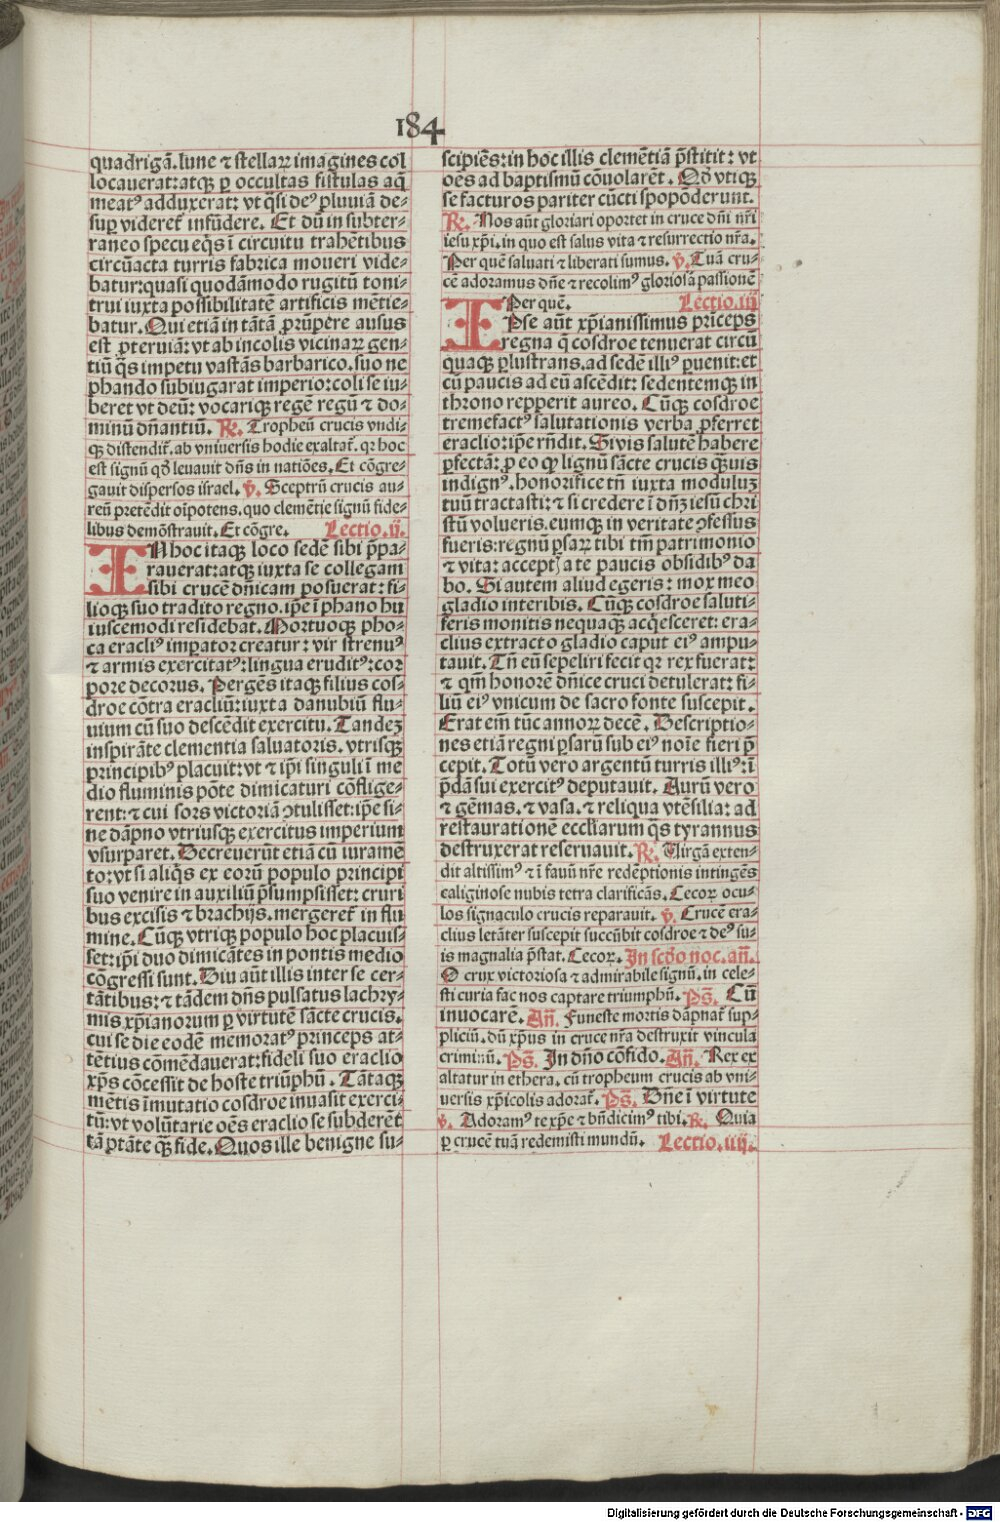 184
quadrigã. lune ⁊ stellaꝝ imagines col
locauerat: atqꝫ ꝑ occultas fistulas aq̃
meatꝰ adduxerat: vt q̃si deꝰ pluuiã de-
suꝑ videret̃ infũdere. Et dũ in subter-
raneo specu eq̃s ĩ circuitu trahẽtibus
circũacta turris fabrica moueri vide-
batur: quasi quodãmodo rugitũ toni-
trui iuxta possibilitatẽ artificis mẽtie-
batur. Qui etiã in tãtã ꝓrũpere ausus
est ꝓteruiã: vt ab incolis vicinaꝝ gen-
tiũ q̃s impetu vastãs barbarico. suo ne
phando subiugarat imperio: coli se iu-
beret vt deũ: vocariqꝫ regẽ regũ ⁊ do-
minũ dñantiũ. ℟. Tropheũ crucis vndi-
qꝫ distendit̃. ab vniuersis hodie exaltat̃. qꝛ hoc
est signũ qð leuauit dñs in natiões. Et cõgre-
gauit dispersos israel. ℣. Sceptrũ crucis au-
reũ pretẽdit oĩpotens. quo clemẽtie signũ fide-
libus demõstrauit. Et cõgre. Lectio. ij.
IN hoc itaqꝫ loco sedẽ sibi p̃pa-
rauerat: atqꝫ iuxta se collegam
sibi crucẽ dñicam posuerat: fi-
lioqꝫ suo tradito regno. ip̃e ĩ phano hu
iuscemodi residebat. Mortuoqꝫ pho-
ca eracliꝰ imꝑator creatur: vir strenuꝰ
⁊ armis exercitatꝰ: lingua eruditꝰ: cor
pore decorus. Pergẽs itaqꝫ filius cos-
droe cõtra eracliũ: iuxta danubiũ flu-
uium cũ suo descẽdit exercitu. Tandeꝫ
inspirãte clementia saluatoris. vtrisqꝫ
principibꝰ placuit: vt ⁊ ip̃i singuli ĩ me
dio fluminis põte dimicaturi cõflige-
rent: ⁊ cui sors victoriã ꝯtulisset: ip̃e si-
ne dãpno vtriusqꝫ exercitus imperium
vsurparet. Decreuerũt etiã cũ iuramẽ
to: vt si aliq̃s ex eorũ populo principi
suo venire in auxiliũ p̃sumpsisset: cruri
bus excisis ⁊ brachijs. mergeret̃ in flu
mine. Cũqꝫ vtriqꝫ populo hoc placuis-
set: ip̃i duo dimicãtes in pontis medio
cõgressi sunt. Diu aũt illis inter se cer-
tãtibus: ⁊ tãdem dñs pulsatus lachry-
mis xp̃ianorum ꝑ virtutẽ sãcte crucis.
cui se die eodẽ memoratꝰ princeps at-
tẽtius cõmẽdauerat: fideli suo eraclio
xp̃s cõcessit de hoste triũphũ. Tãtaqꝫ
mẽtis ĩmutatio cosdroe inuasit exerci-
tũ: vt volũtarie oẽs eraclio se subderẽt
tã ꝓtãte qꝫ̃ fide. Quos ille benigne su-
scipiẽs: in hoc illis clemẽtiã p̃stitit: vt
oẽs ad baptismũ cõuolarẽt. Qð vtiqꝫ
se facturos pariter cũcti spopõderunt.
℟. Nos aũt gloriari oportet in cruce dñi nr̃i
iesu xp̃i. in quo est salus vita ⁊ resurrectio nr̃a.
Per quẽ saluati ⁊ liberati sumus. ℣. Tuã cru-
cẽ adoramus dñe ⁊ recolimꝰ gloriosã passionẽ
Per quẽ. Lectio. iij
IPse aũt xp̃ianissimus prĩceps
regna q̃ cosdroe tenuerat circũ
quaqꝫ ꝑlustrans. ad sedẽ illiꝰ ꝑuenit: et
cũ paucis ad eũ ascẽdit: sedentemqꝫ in
throno repperit aureo. Cũqꝫ cosdroe
tremefactꝰ salutationis verba ꝓferret
eraclio: ip̃e rñdit. Si vis salutẽ habere
ꝑfectã: ꝓ eo qꝙ lignũ sãcte crucis qꝫ̃uis
indignꝰ. honorifice tñ iuxta moduluꝫ
tuũ tractasti: ⁊ si credere ĩ dñꝫ iesũ chri
stũ volueris. eumqꝫ in veritate ꝯfessus
fueris: regnũ ꝑsaꝝ tibi tm̃ patrimonio
⁊ vita: acceptꝭ a te paucis obsidibꝰ da
bo. Si autem aliud egeris: mox meo
gladio interibis. Cũqꝫ cosdroe saluti-
feris monitis nequaqꝫ acq̃esceret: era-
clius extracto gladio caput eiꝰ ampu-
tauit. Tñ eũ sepeliri fecit qꝛ rex fuerat:
⁊ qm̃ honorẽ dñice cruci detulerat: fi-
liũ eiꝰ vnicum de sacro fonte suscepit.
Erat em̃ tũc annoꝝ decẽ. Descriptio-
nes etiã regni ꝑsarũ sub eiꝰ noĩe fieri p̃
cepit. Totũ vero argentũ turris illiꝰ: ĩ
p̃dã sui exercitꝰ deputauit. Aurũ vero
⁊ gẽmas. ⁊ vasa. ⁊ reliqua vtẽsilia: ad
restaurationẽ eccl̃iarum q̃s tyrannus
destruxerat reseruauit. ℟. Virgã exten-
dit altissimꝰ ⁊ ĩ fauũ nr̃e redẽptionis intingẽs
caliginose nubis tetra clarificãs. Cecoꝝ ocu-
los signaculo crucis reparauit. ℣. Crucẽ era-
clius letãter suscepit succũbit cosdroe ⁊ deꝰ su-
is magnalia p̃stat. Cecoꝝ. In sc̃do noc. añ.
O crux victoriosa ⁊ admirabile signũ. in cele-
sti curia fac nos captare triumphũ. Ps̃. Cũ
inuocarẽ. Añ. Funeste mortis dãpnat̃ sup-
pliciũ. dũ xp̃us in cruce nr̃a destruxit vincula
criminũ. Ps̃. In dño cõfido. Añ. Rex ex
altatur in ethera. cũ tropheum crucis ab vni-
uersis xp̃icolis adorat̃. Ps̃. Dñe ĩ virtute
℣. Adoramꝰ te xp̃e ⁊ bñdicimꝰ tibi. ℟. Quia
ꝑ crucẽ tuã redemisti mundũ. Lectio. iiij.
Digitalisierung gefördert durch die Deutsche Forschungsgemeinschaft - DFG